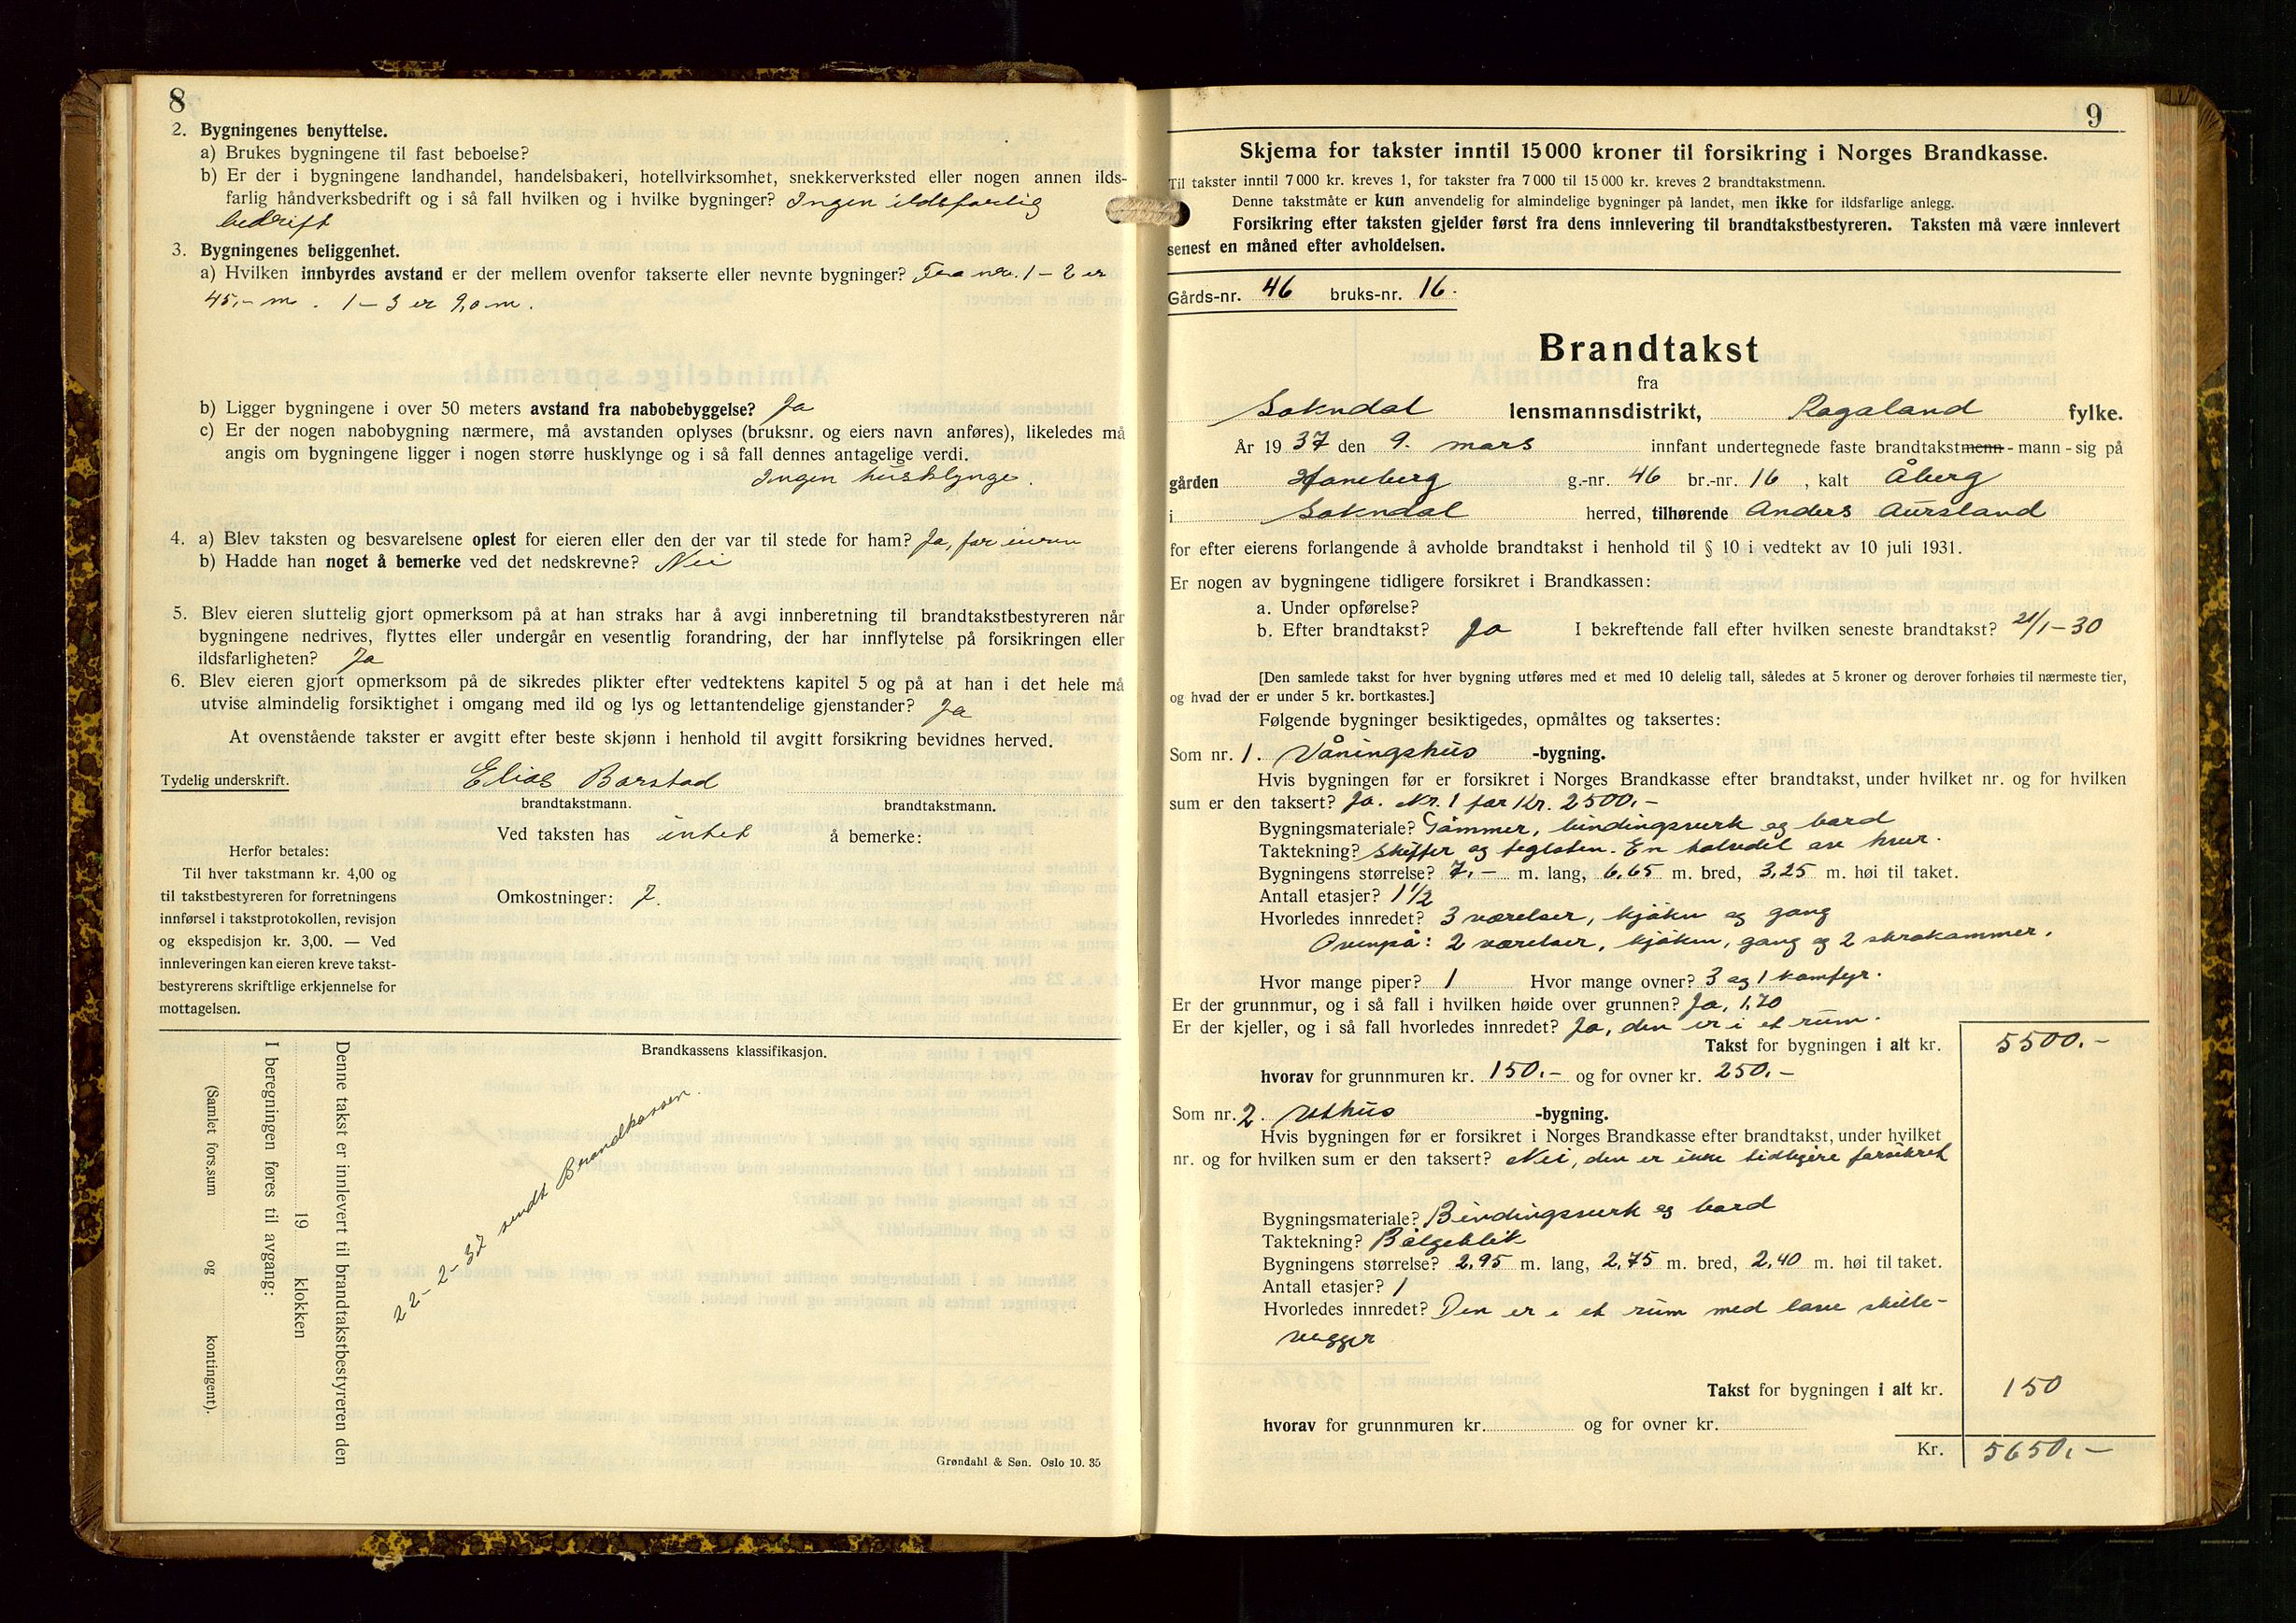 8
2. Bygningenes benyttelse.
a) Brukes bygningene til fast beboelse?
b) Er der i bygningene landhandel, handelsbakeri, hotellvirksomhet, snekkerverksted eller nogen annen ilds-
farlig håndverksbedrift og i så fall hvilken og i hvilke bygninger? Ingen ildsfarlig
bedrift
3. Bygningenes beliggenhet.
a) Hvilken innbyrdes avstand er der mellem ovenfor takserte eller nevnte bygninger? Fra nr. 1 – 2 er
45,- m . 1 – 3 er 9,0 m .
b) Ligger bygningene i over 50 meters avstand fra nabobebyggelse? Ja
c) Er der nogen nabobygning nærmere, må avstanden oplyses (bruksnr. og eiers navn anføres), likeledes må
angis om bygningene ligger i nogen større husklynge og i så fall dennes antagelige verdi.
Ingen husklynge.
4. a) Blev taksten og besvarelsene oplest for eieren eller den der var til stede for ham? Ja, for eieren
b) Hadde han noget å bemerke ved det nedskrevne? Nei
5. Blev eieren sluttelig gjort opmerksom på at han straks har å avgi innberetning til brandtakstbestyreren når
bygningene nedrives, flyttes eller undergår en vesentlig forandring, der har innflytelse på forsikringen eller
ildsfarligheten? Ja
6. Blev eieren gjort opmerksom på de sikredes plikter efter vedtektens kapitel 5 og på at han i det hele må
utvise almindelig forsiktighet i omgang med ild og lys og lettantendelige gjenstander? Ja
At ovenstående takster er avgitt efter beste skjønn i henhold til avgitt forsikring bevidnes herved.
Tydelig underskrift. Elias Barstad
brandtakstmann. brandtakstmann.
Ved taksten has intet å bemerke:
Herfor betales:
Til hver takstmann kr. 4,00 og
til takstbestyreren for forretningens
innførsel i takstprotokollen, revisjon
og ekspedisjon kr. 3,00. — Ved
innleveringen kan eieren kreve takst-
bestyrerens skriftlige erkjennelse for
mottagelsen.
Omkostninger: 7.
Brandkassens klassifikasjon.
Denne takst er innlevert til brandtakstbestyreren den
19 klokken
I beregningen føres til avgang:
(Samlet fors.sum og kontingent).
22-2-37 sendt Brandkassen.
Grøndahl & Søn. Oslo 10. 35
9
Skjema for takster inntil 15 000 kroner til forsikring i Norges Brandkasse.
Til takster inntil 7 000 kr. kreves 1, for takster fra 7 000 til 15 000 kr. kreves 2 brandtakstmenn.
Denne takstmåte er kun anvendelig for almindelige bygninger på landet, men ikke for ildsfarlige anlegg.
Forsikring efter taksten gjelder først fra dens innlevering til brandtakstbestyreren. Taksten må være innlevert
senest en måned efter avholdelsen.
Gårds-nr. 46 bruks-nr. 16.
Brandtakst
fra
Sokndal lensmannsdistrikt, Rogaland fylke.
År 1937 den 9. mars innfant undertegnede faste brandtakstmenn - mann - sig på
gården Haneberg g.-nr. 46 br.-nr. 16 , kalt Åberg
i Sokndal herred, tilhørende Anders Aursland
for efter eierens forlangende å avholde brandtakst i henhold til § 10 i vedtekt av 10 juli 1931.
Er nogen av bygningene tidligere forsikret i Brandkassen:
a. Under opførelse?
b. Efter brandtakst? Ja I bekreftende fall efter hvilken seneste brandtakst? 21/1–30
[Den samlede takst for hver bygning utføres med et med 10 delelig tall, således at 5 kroner og derover forhøies til nærmeste tier,
og hvad der er under 5 kr. bortkastes.]
Følgende bygninger besiktigedes, opmåltes og taksertes:
Som nr. 1. Våningshus -bygning.
Hvis bygningen før er forsikret i Norges Brandkasse efter brandtakst, under hvilket nr. og for hvilken
sum er den taksert? Ja. Nr. 1 for Kr. 2500.–
Bygningsmateriale? Tømmer, bindingsverk og bord
Taktekning? Skiffer og teglsten. En halvdel av hver.
Bygningens størrelse? 7.– m. lang, 6,65 m. bred, 3,25 m. høi til taket.
Antall etasjer? 1 1/2
Hvorledes innredet? 3 værelser, kjøken og gang
Ovenpå: 2 værelser, kjøken, gang og 2 skråkammer.
Hvor mange piper? 1 Hvor mange ovner? 3 og 1 komfyr.
Er der grunnmur, og i så fall i hvilken høide over grunnen? Ja, 1,70
Er der kjeller, og i så fall hvorledes innredet? Ja, den er i et rum.
Takst for bygningen i alt kr. 5500.–
hvorav for grunnmuren kr. 150.– og for ovner kr. 250.–
Som nr. 2. Uthus -bygning.
Hvis bygningen før er forsikret i Norges Brandkasse efter brandtakst, under hvilket
nr. og for hvilken sum er den taksert? Nei, den er ikke tidligere forsikret
Bygningsmateriale? Bindingsverk og bord
Taktekning? Bølgeblik
Bygningens størrelse? 2,95 m. lang, 2,75 m. bred, 2,40 m. høi til taket.
Antall etasjer? 1
Hvorledes innredet? Den er i et rum med lave skille-
vegger
Takst for bygningen i alt kr. 150
hvorav for grunnmuren kr. og for ovner kr.
Kr. 5650.–